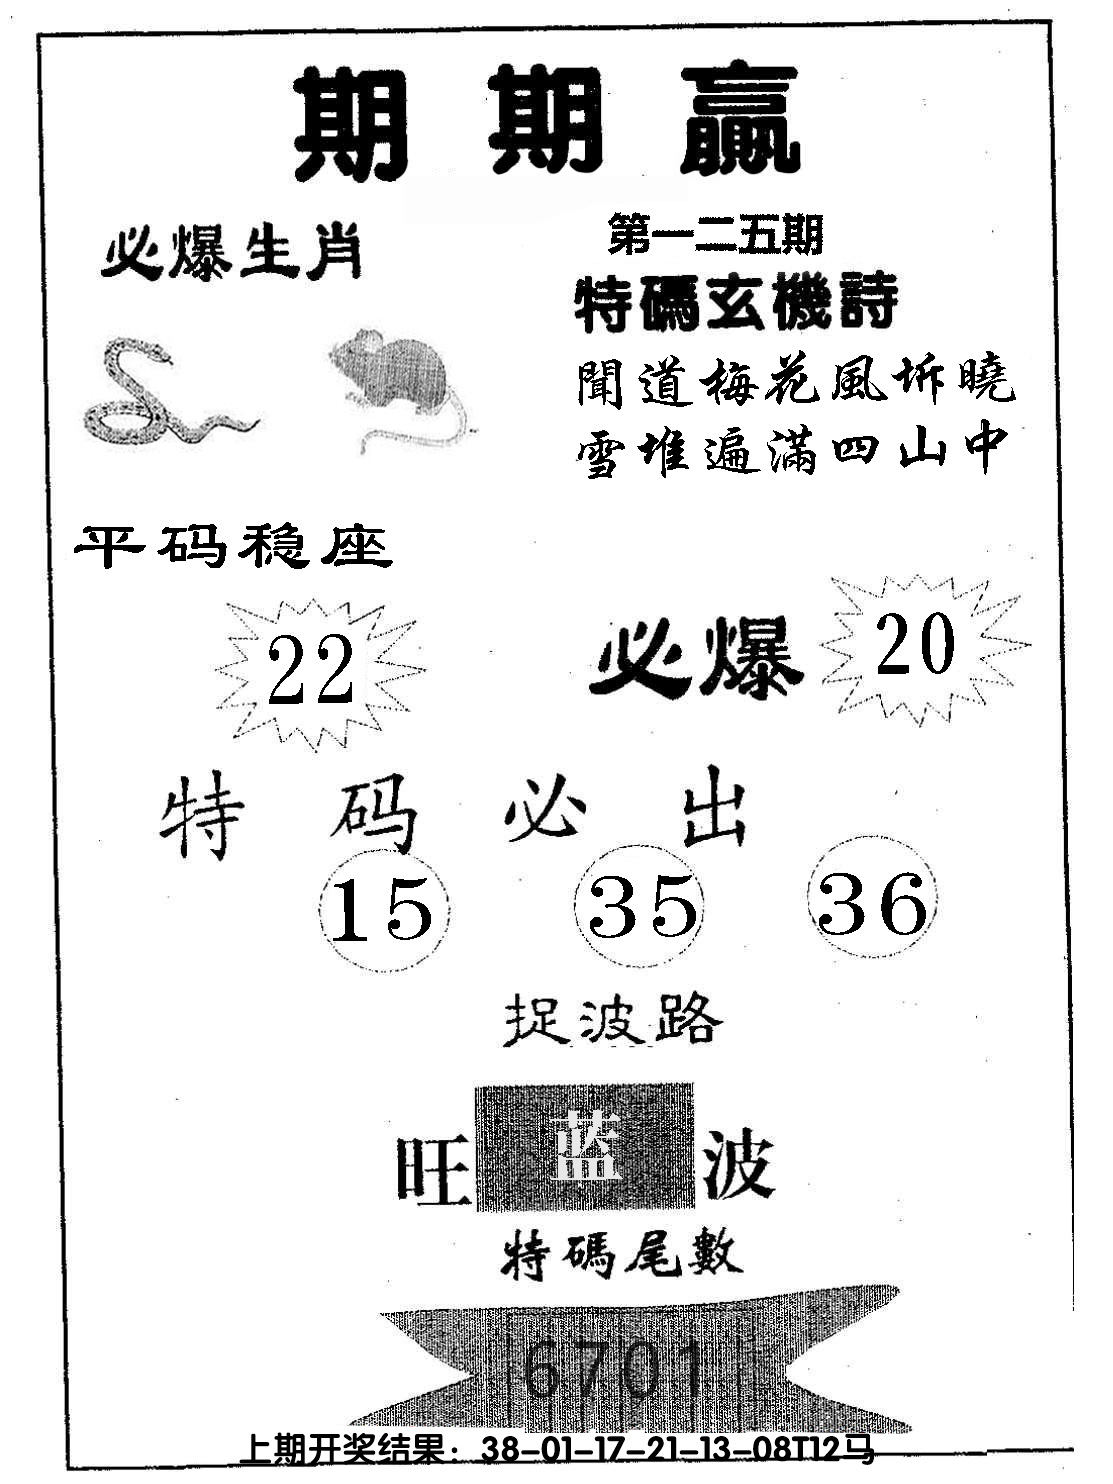 期期贏
必爆生肖
第一二五期
特碼玄機詩
聞道梅花風坼曉
雪堆遍滿四山中
平码稳座
22
必爆 20
特码必出
15 35 36
捉波路
旺 蓝 波
特碼尾數
6701
上期开奖结果：38-01-17-21-13-08T12马